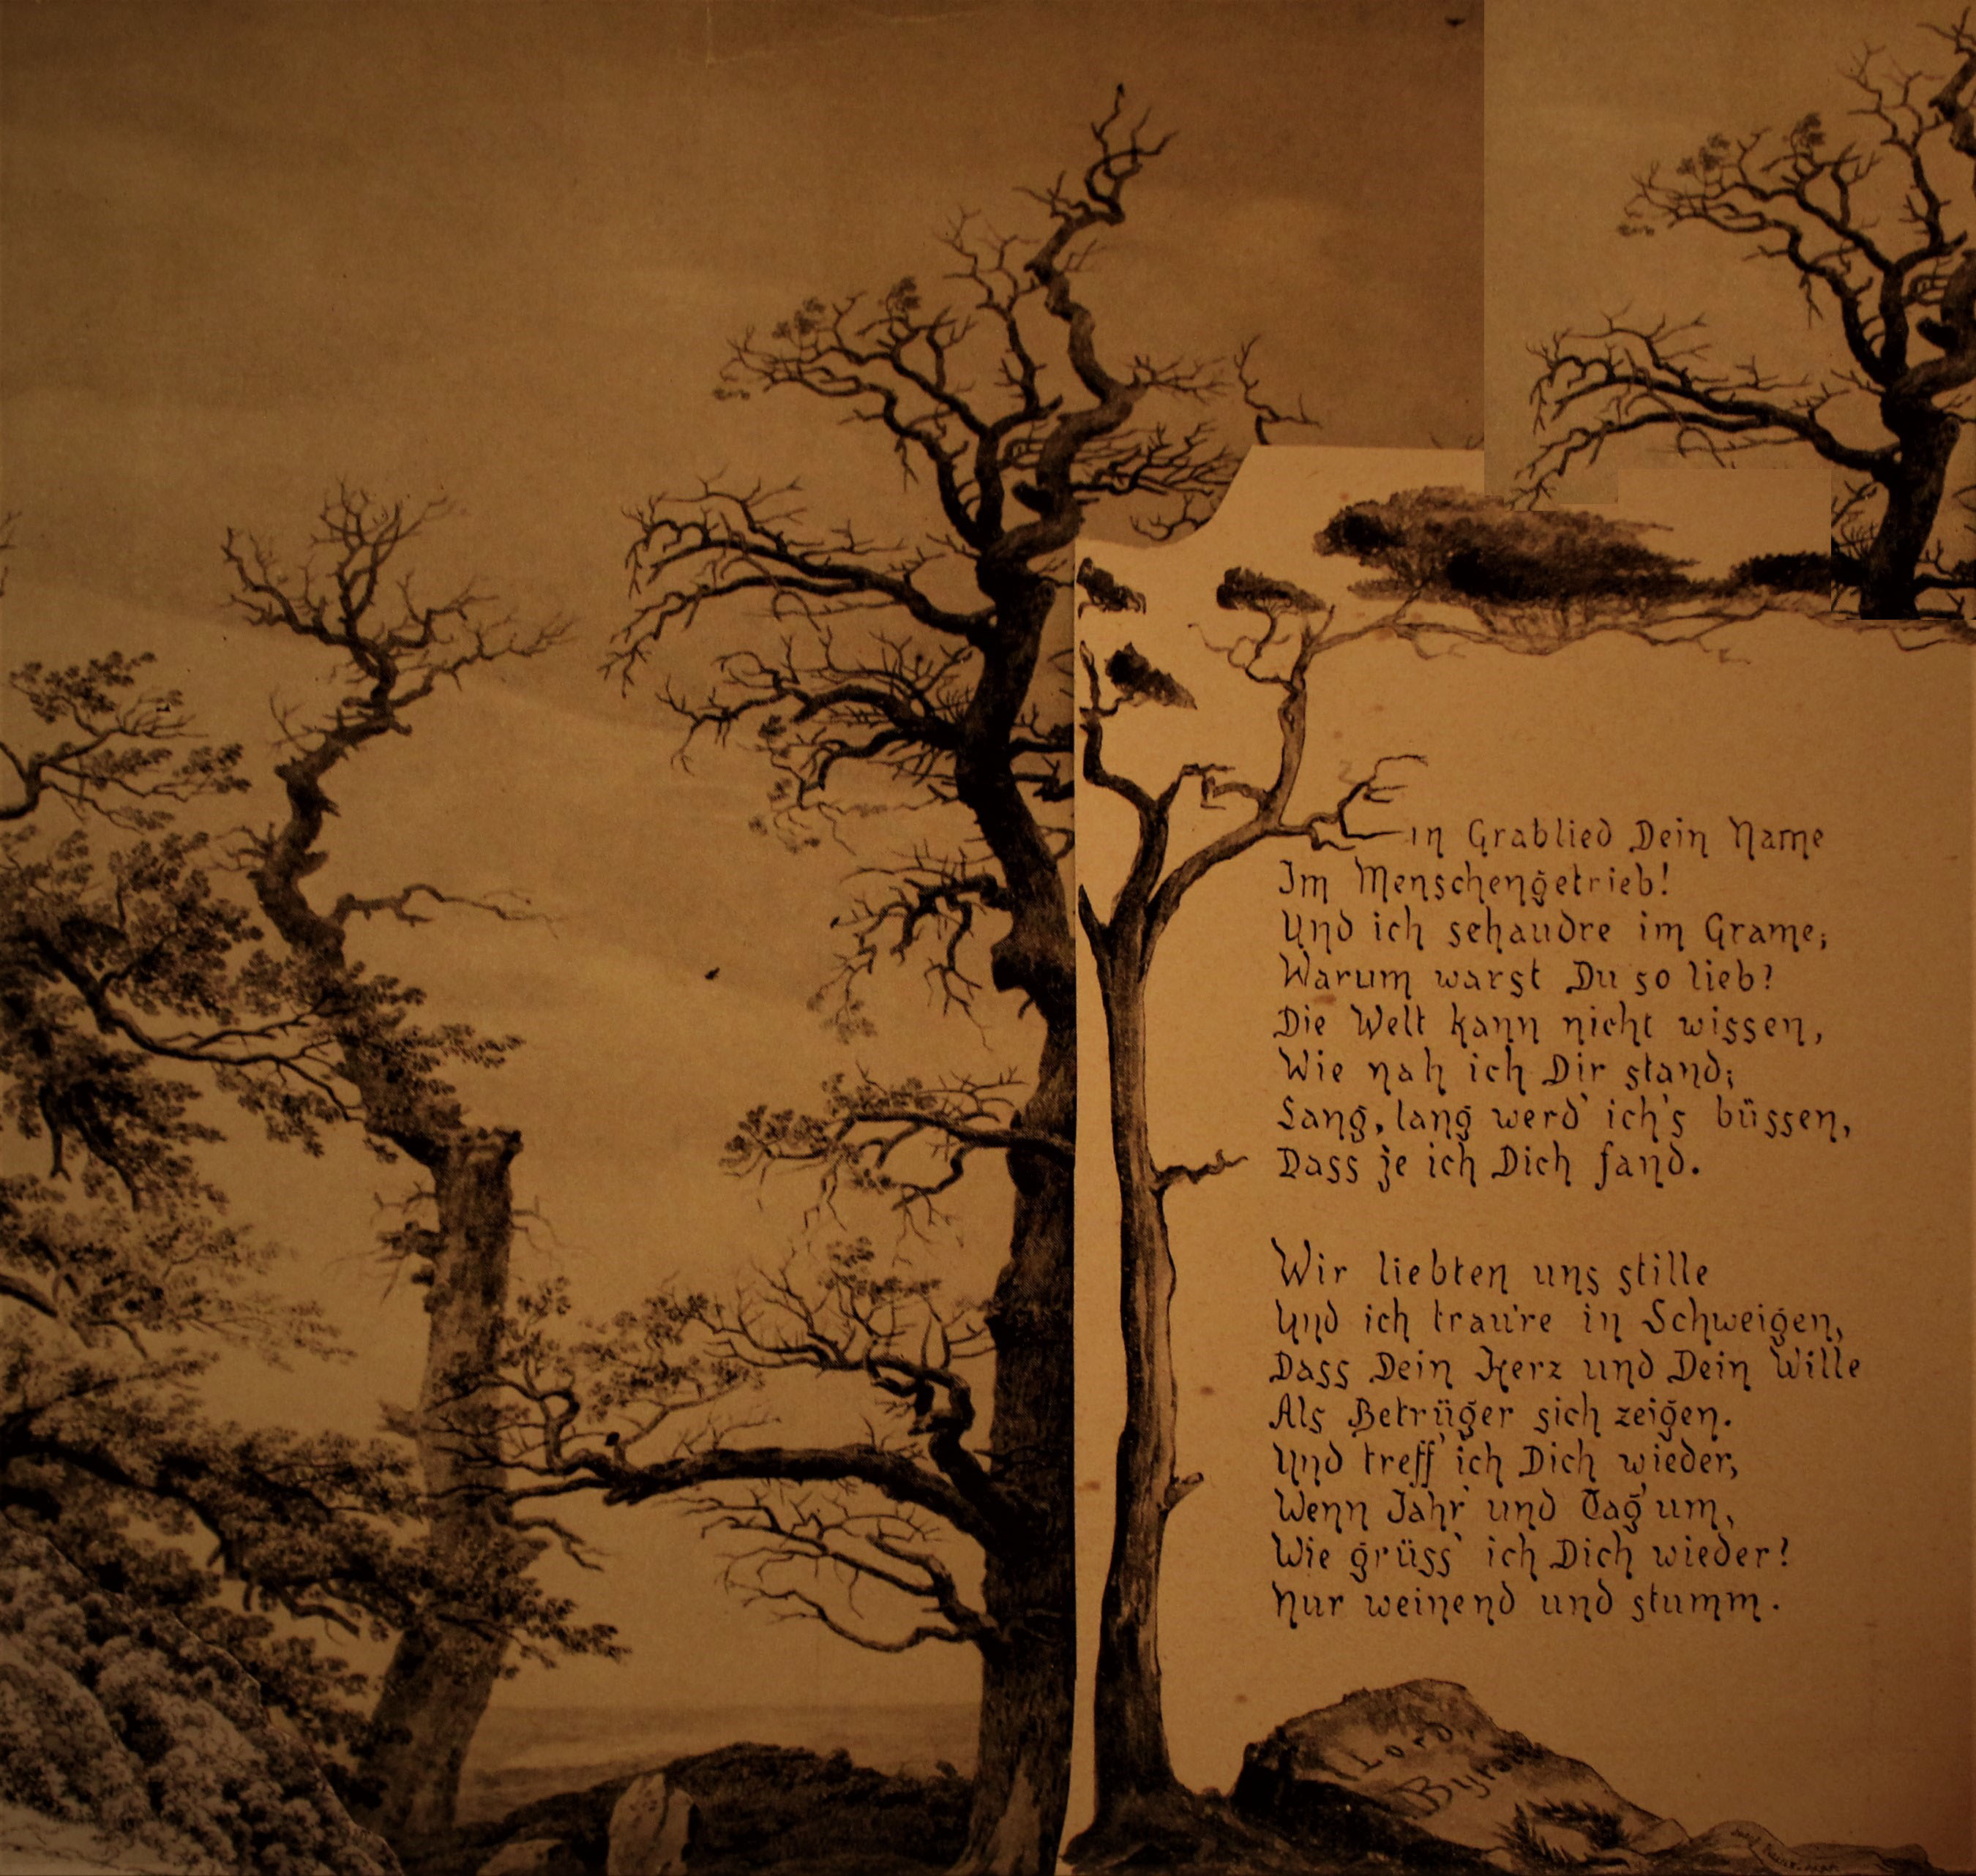 Ein Grablied Dein Name
Im Menschengetrieb!
Und ich schaudre im Grame;
Warum warst Du so lieb?
Die Welt kann nicht wissen,
Wie nah ich Dir stand;
Lang, lang werd' ich's büssen,
Dass je ich Dich fand.
Wir liebten uns stille
Und ich traure in Schweigen,
Dass Dein Herz und Dein Wille
Als Betrüger sich zeigen.
Und treff' ich Dich wieder,
Wenn Jahr' und Tag' um,
Wie grüss' ich Dich wieder!
Nur weinend und stumm.
Lord
Byron